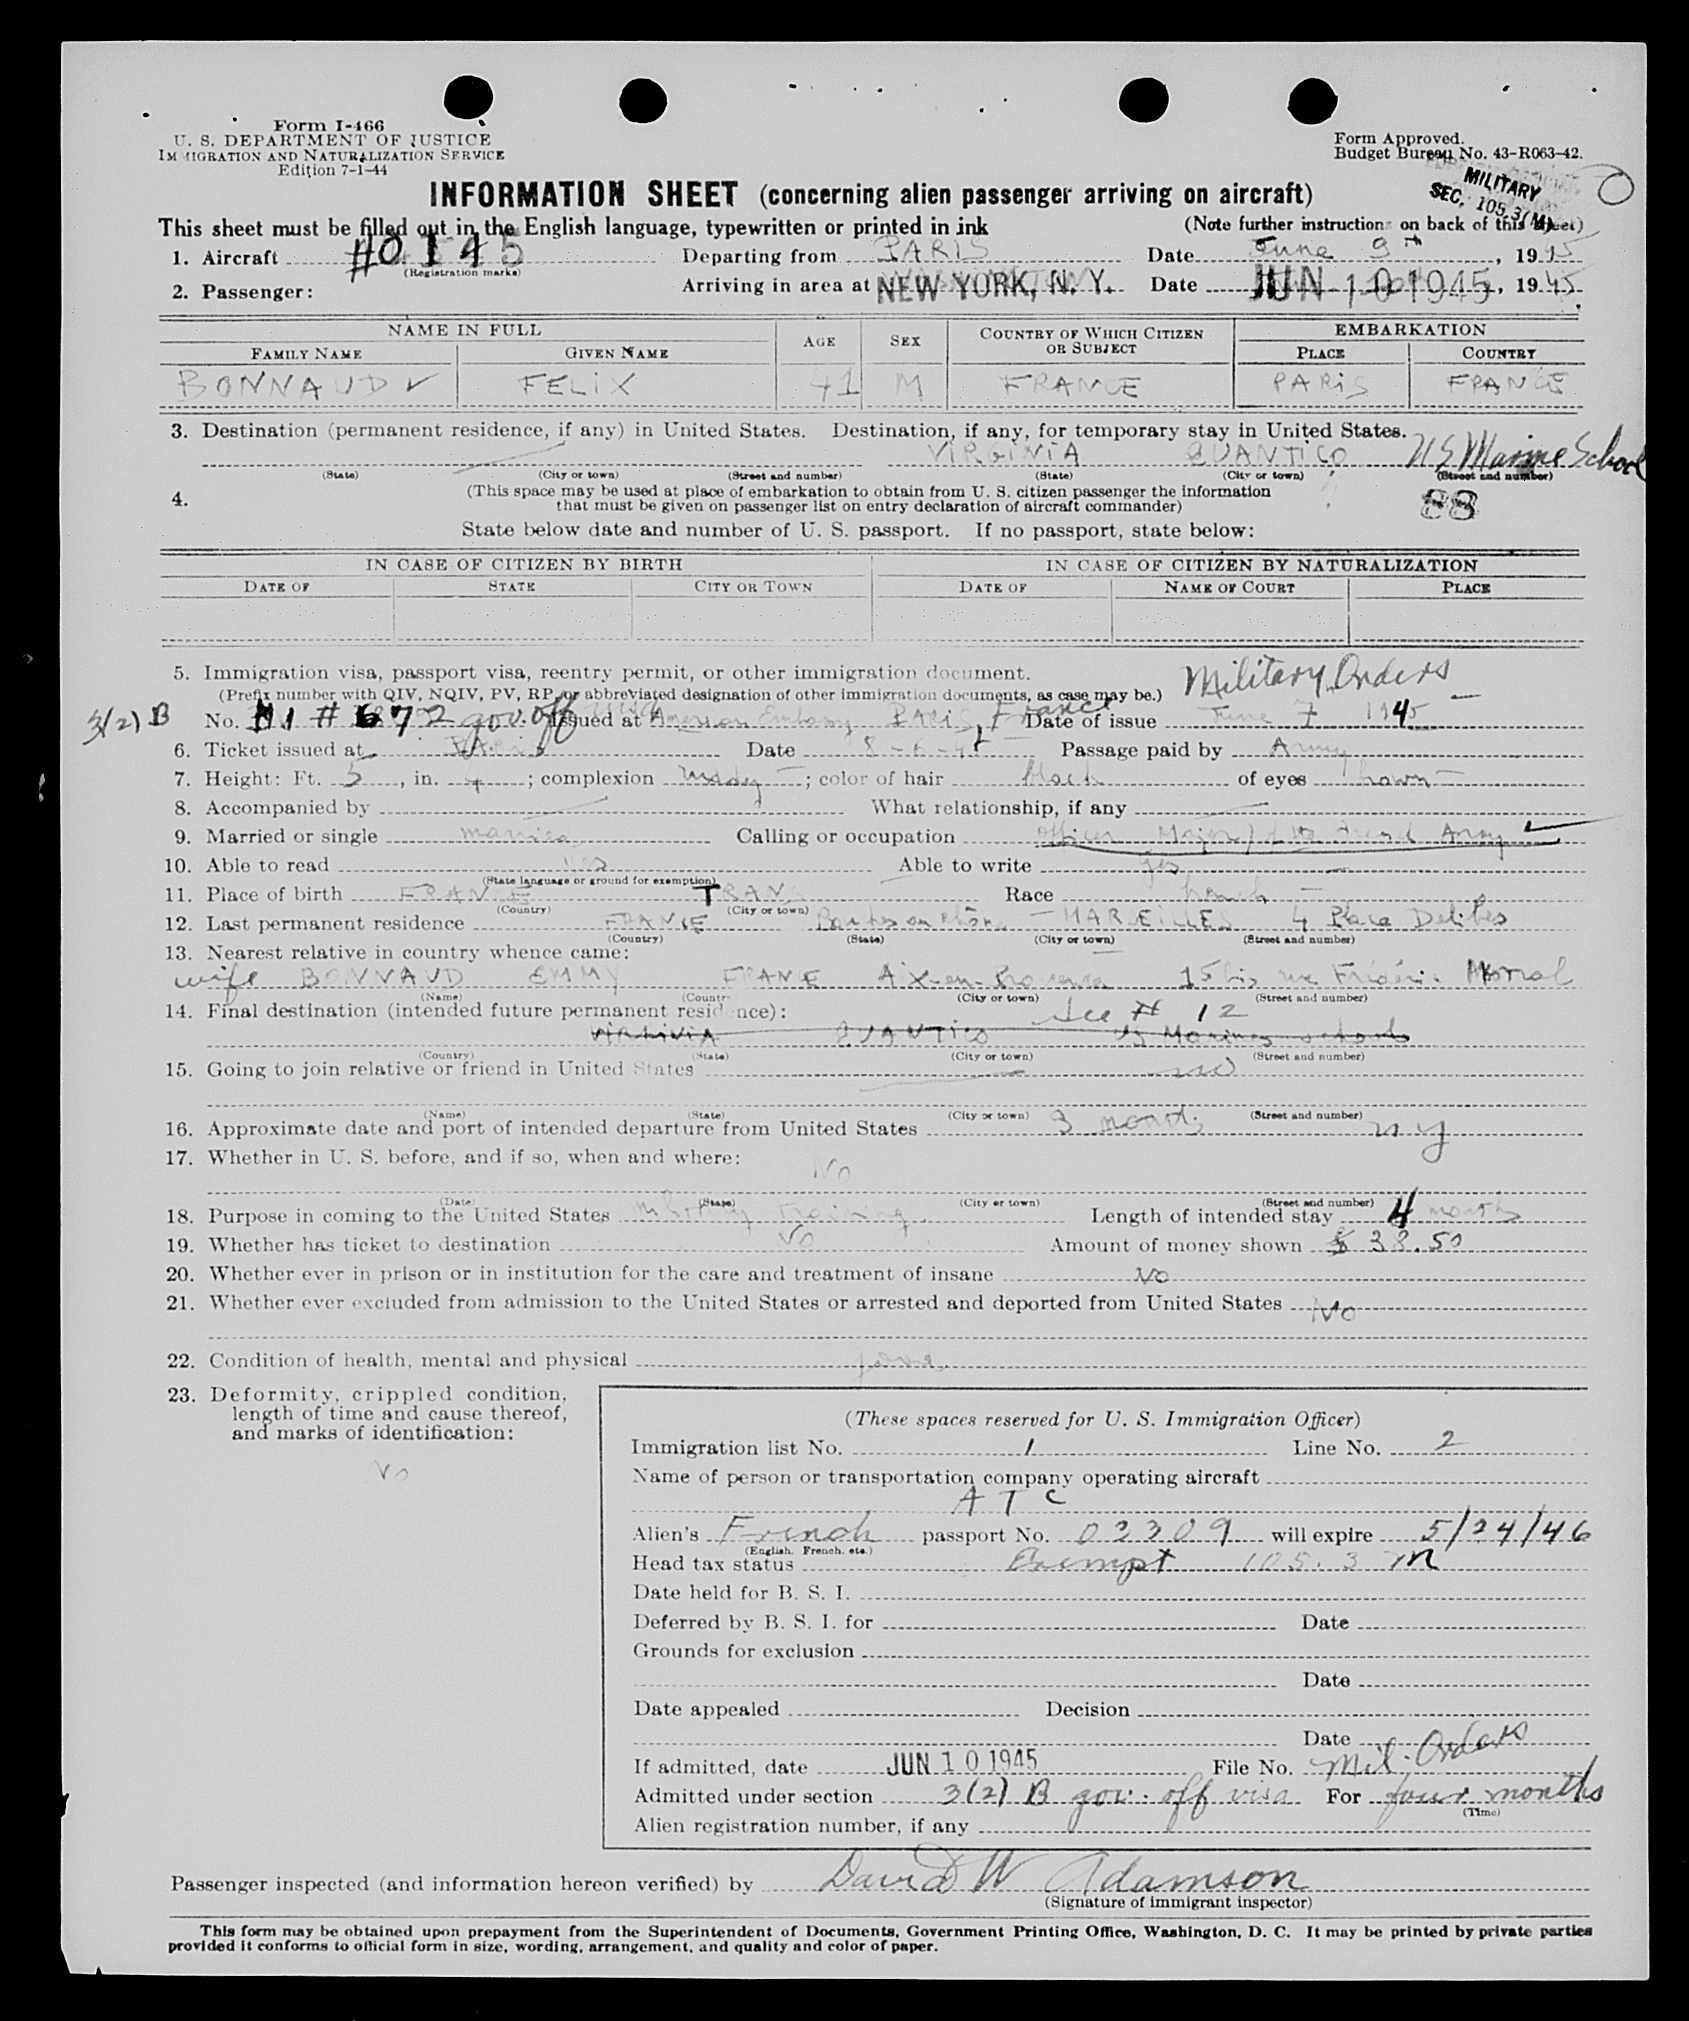 Form I-466
U. S. DEPARTMENT OF JUSTICE
IMMIGRATION AND NATURALIZATION SERVICE
Edition 7-1-44
Form Approved.
Budget Bureau No. 43-R063-42.
MILITARY
SEC. 105.3(M)
INFORMATION SHEET (concerning alien passenger arriving on aircraft)
This sheet must be filled out in the English language, typewritten or printed in ink (Note further instructions on back of this sheet)
1. Aircraft Departing from PARIS Date June 9th, 1945
(Registration marks)
2. Passenger: Arriving in area at NEW YORK, N. Y. Date JUN 10 1945, 1945
NAME IN FULL AGE SEX COUNTRY OF WHICH CITIZEN OR SUBJECT EMBARKATION
FAMILY NAME GIVEN NAME PLACE COUNTRY
BONNAUD ✓ FELIX 41 M FRANCE PARIS FRANCE
3. Destination (permanent residence, if any) in United States. Destination, if any, for temporary stay in United States.
VIRGINIA QUANTICO US Marine School
(State) (City or town) (Street and number) (State) (City or town) (Street and number)
88
4. (This space may be used at place of embarkation to obtain from U. S. citizen passenger the information
that must be given on passenger list on entry declaration of aircraft commander)
State below date and number of U. S. passport. If no passport, state below:
IN CASE OF CITIZEN BY BIRTH IN CASE OF CITIZEN BY NATURALIZATION
DATE OF STATE CITY OR TOWN DATE OF NAME OF COURT PLACE
5. Immigration visa, passport visa, reentry permit, or other immigration document. Military Orders
(Prefix number with QIV, NQIV, PV, RP, or abbreviated designation of other immigration documents, as case may be.)
3(2) B No. # 672 gov. off visa Issued at American Embassy PARIS, France Date of issue June 7 1945
6. Ticket issued at Paris Date 8-6-45 Passage paid by Army
7. Height: Ft. 5, in. 4; complexion ; color of hair black of eyes brown
8. Accompanied by What relationship, if any
9. Married or single married Calling or occupation officer Major French Army ✓
10. Able to read yes Able to write yes
(State language or ground for exemption)
11. Place of birth FRANCE TRANS Race french
(Country) (City or town)
12. Last permanent residence FRANCE MARSEILLES 4 Place Delibes
(Country) (State) (City or town) (Street and number)
13. Nearest relative in country whence came:
wife BONNAUD EMMY FRANCE Aix-en-Provence 15 bis rue
(Name) (Country) (City or town) (Street and number)
14. Final destination (intended future permanent residence): See # 12
VIRGINIA QUANTICO US Marines schools
(Country) (State) (City or town) (Street and number)
15. Going to join relative or friend in United States no
(Name) (State) (City or town) (Street and number)
16. Approximate date and port of intended departure from United States 3 months n y
17. Whether in U. S. before, and if so, when and where:
No
(Date) (State) (City or town) (Street and number)
18. Purpose in coming to the United States military training Length of intended stay 4 months
19. Whether has ticket to destination No Amount of money shown $ 38.50
20. Whether ever in prison or in institution for the care and treatment of insane No
21. Whether ever excluded from admission to the United States or arrested and deported from United States No
22. Condition of health, mental and physical
23. Deformity, crippled condition,
length of time and cause thereof,
and marks of identification:
No
(These spaces reserved for U. S. Immigration Officer)
Immigration list No. 1 Line No. 2
Name of person or transportation company operating aircraft
A T C
Alien's French passport No. 02309 will expire 5/24/46
(English, French, etc.)
Head tax status Exempt 105.3 m
Date held for B. S. I.
Deferred by B. S. I. for Date
Grounds for exclusion
Date
Date appealed Decision
Date
If admitted, date JUN 10 1945 File No. Mil. Orders
Admitted under section 3(2) B gov. off visa For four months
(Time)
Alien registration number, if any
Passenger inspected (and information hereon verified) by David W Adamson
(Signature of immigrant inspector)
This form may be obtained upon prepayment from the Superintendent of Documents, Government Printing Office, Washington, D. C. It may be printed by private parties
provided it conforms to official form in size, wording, arrangement, and quality and color of paper.